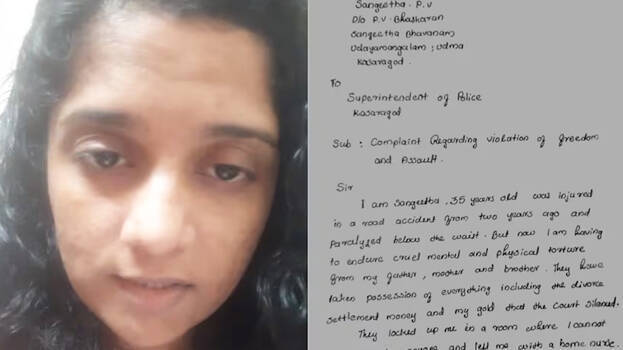 Sangeetha. P.V
D/o P.V. Bhaskaran
Sangeetha Bhavanam
Udayamangalam, Udma
Kasaragod.
To
Superintendent of Police
Kasaragod
Sub : Complaint Regarding violation of freedom
and Assault.
Sir,
I am Sangeetha, 35 years old was injured
in a road accident from two years ago and
Paralyzed below the waist. But now I am having
to endure cruel mental and physical torture
from my father, mother and brother. They have
taken possession of everything including the divorce
settlement money and my gold that the Court
They locked up me in a room where I cannot
and left me with a home nurse.